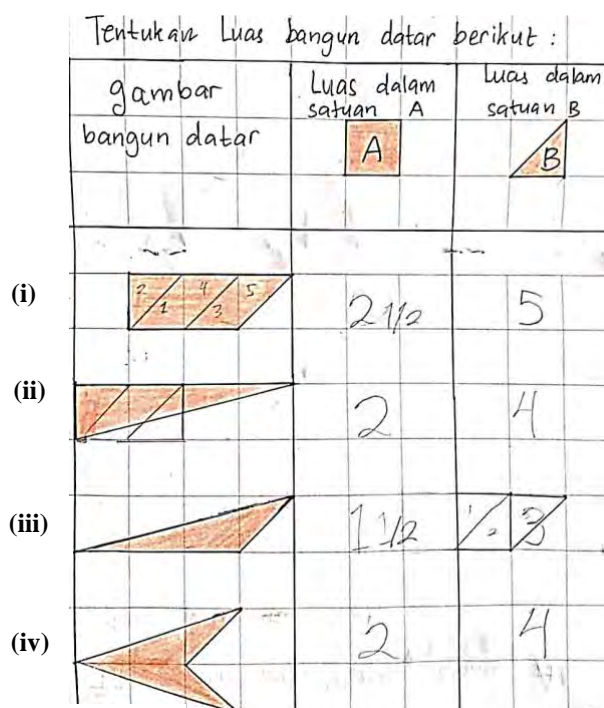 Tentukan Luas bangun datar berikut :
gambar
bangun datar
Luas dalam
satuan A
A
Luas dalam
satuan B
B
(i)
2 1 4 3 5
2 1/2
5
(ii)
2
4
(iii)
1 1/2
1 2 3
(iv)
2
4